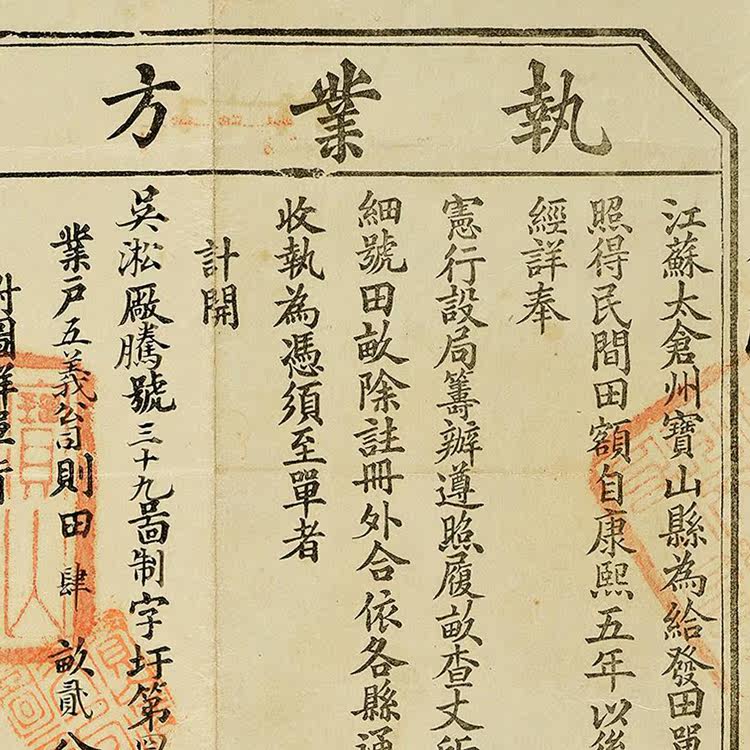 執業方
江蘇太倉州寶山縣為給發田單
照得民間田額自康熙五年以後
經詳奉
憲行設局籌辦遵照履畝查丈所
細號田畝除註冊外合依各縣通
收執為憑須至單者
計開
吳淞厰騰號三十九啚制字圩第四
業戶五義公司則田肆畝貳分
附圖詳